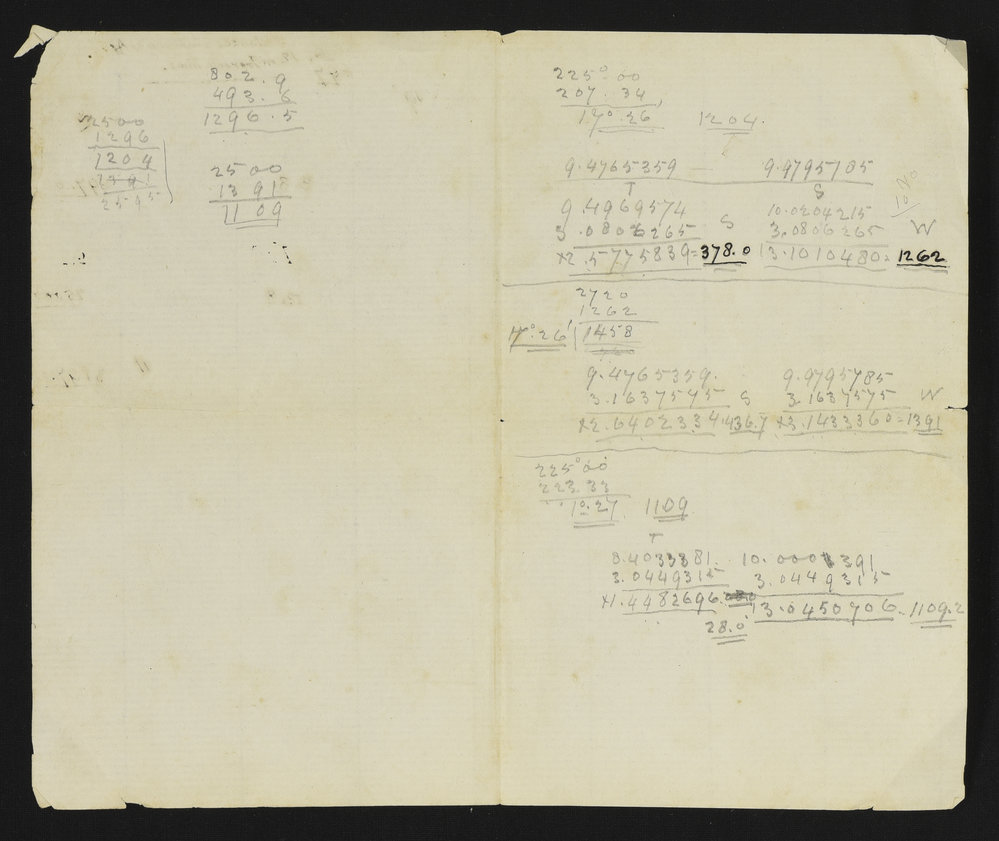 802.9
493.6
1296.5
2500
1296
1204
1391
2595
2500
1391
1109
225°00
207.34
17°.26 1204.
9.4765359 — 9.9795785
T S
9.4969574 10.0204215
3.0806265 S 3.0806265 W
12.5775839=378.0 13.1010480=1262
10%
2720
1262
17°.26' 1458
9.4765359. 9.9795785
3.1637575 S 3.1637575 W
12.6402334.436.7 13.1433360=1391
225°00
223.33
1°.27 1109
T
8.4033381. 10.0001391
3.0449315 3.0449315
11.4482696. 13.0450706=1109.2
28.0